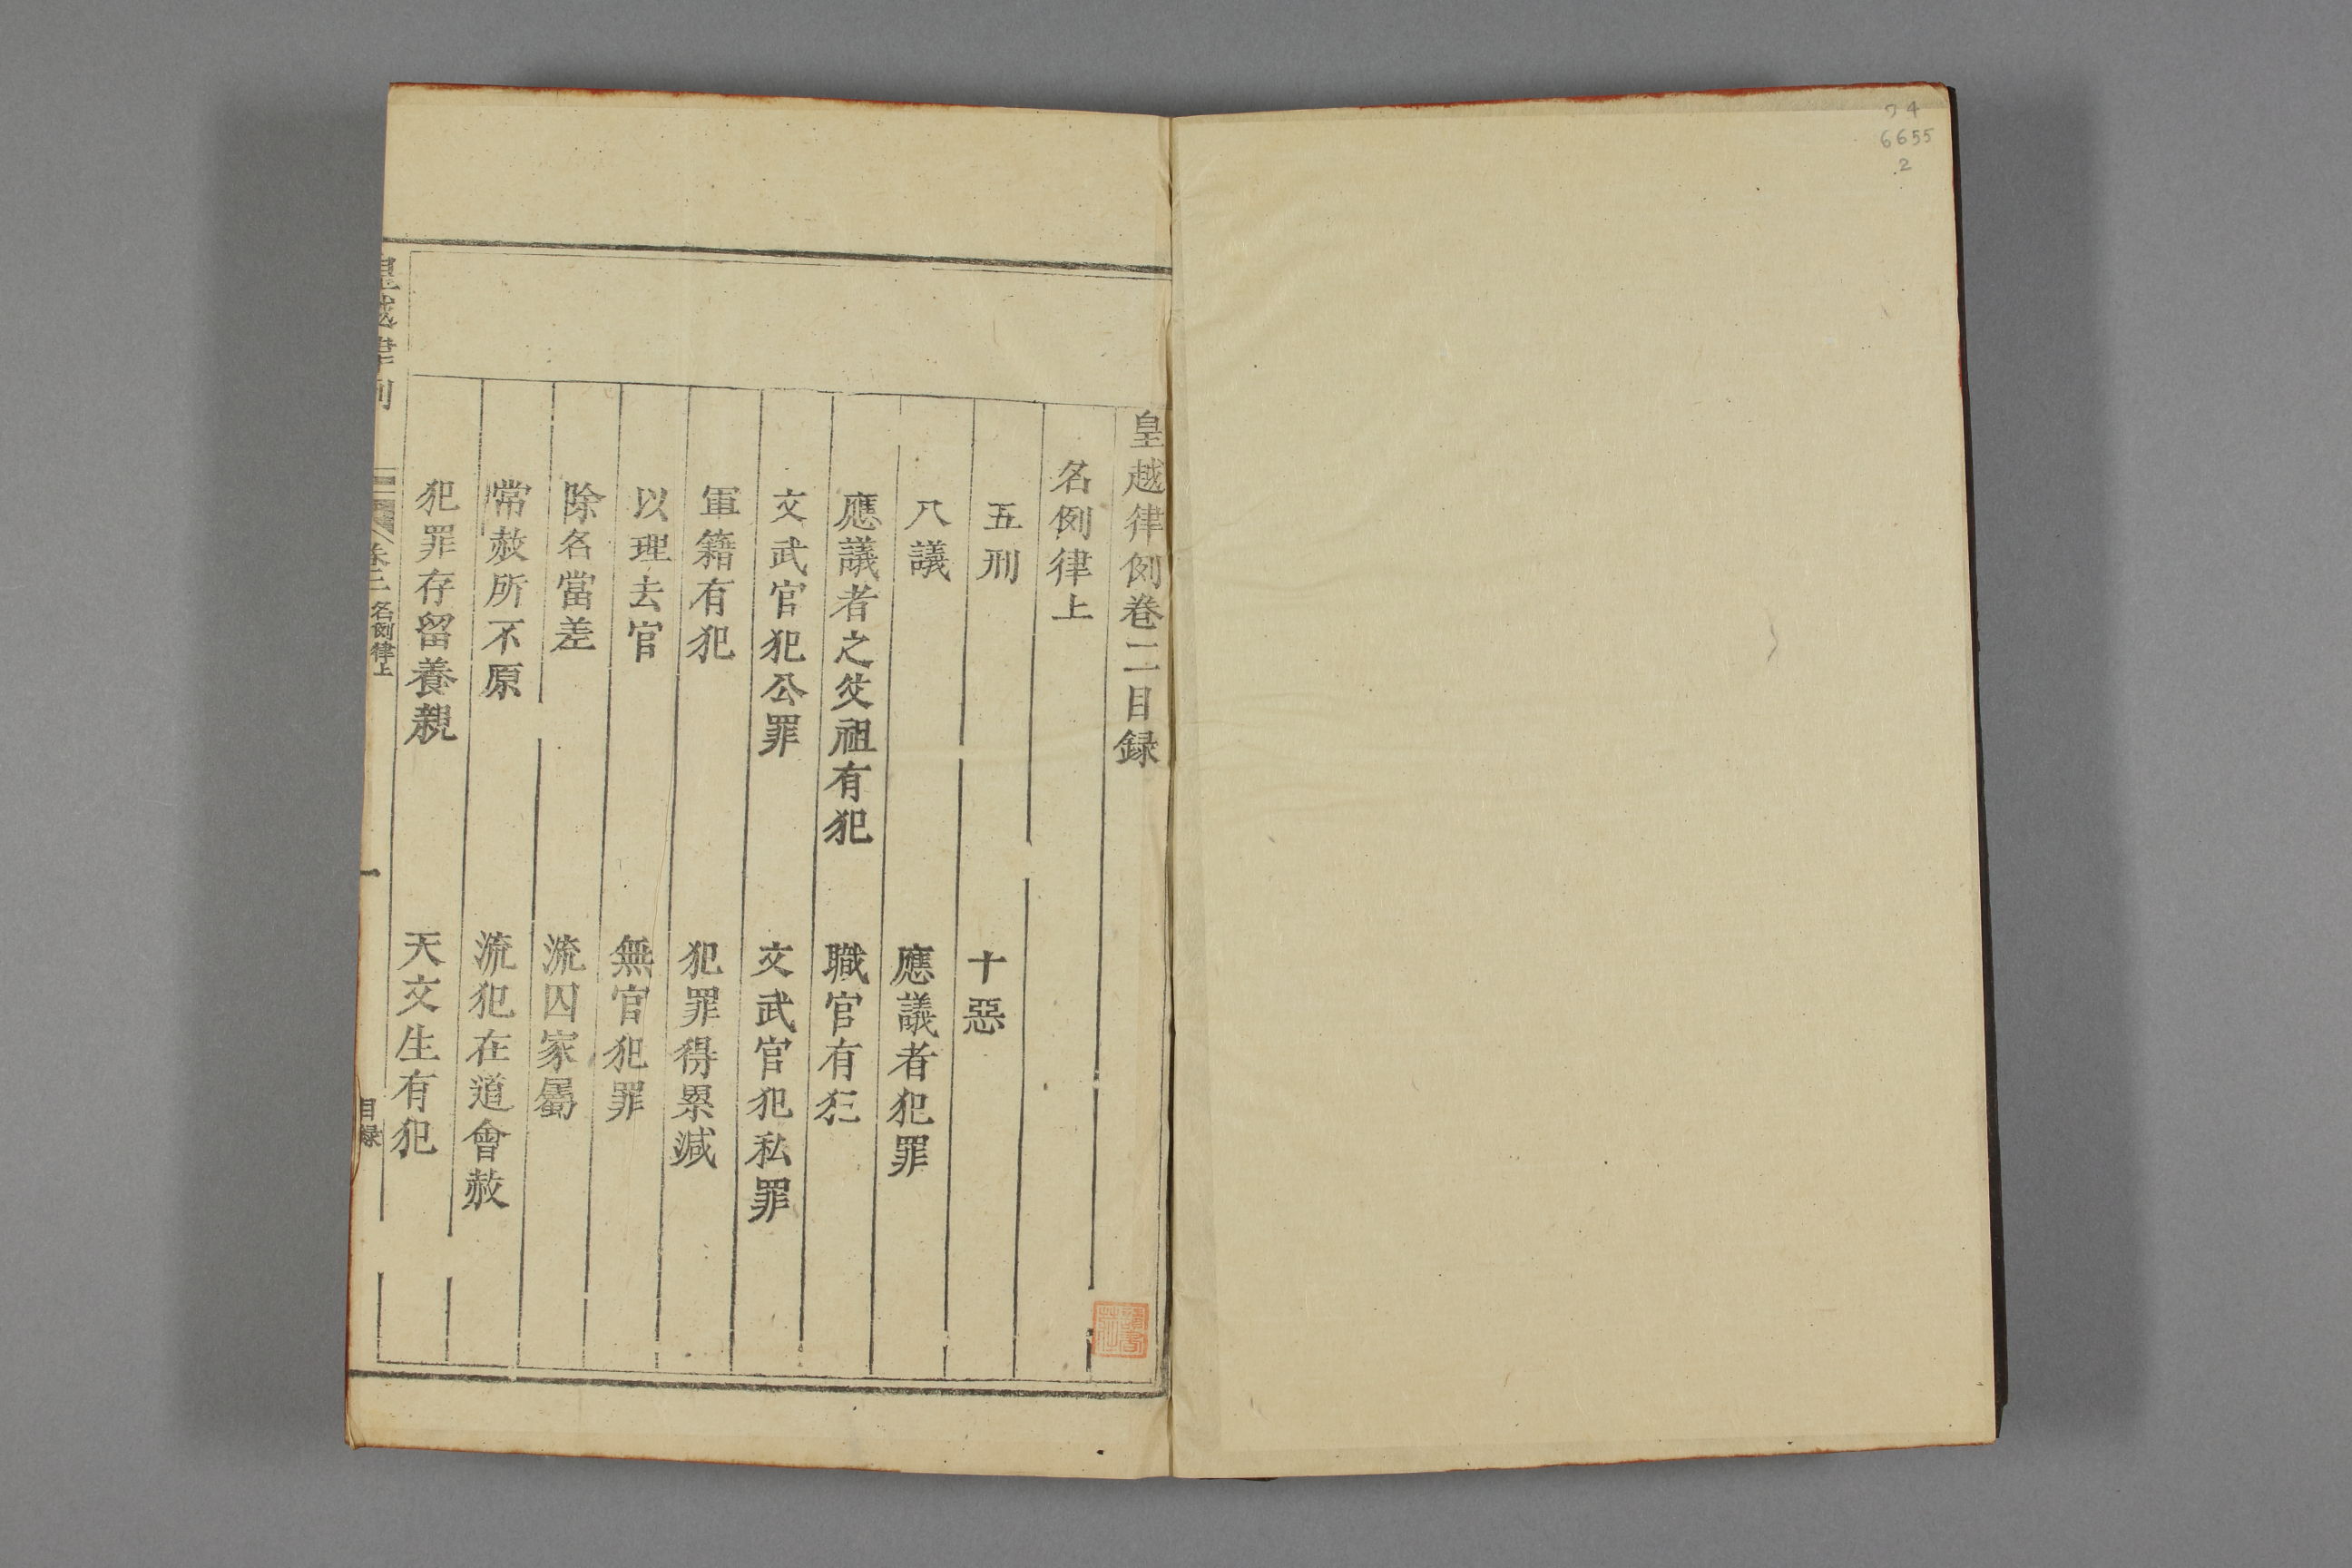 ワ4
6655
2
皇越律例卷二目録
名例律上
五刑　十惡
八議　應議者犯罪
應議者之父祖有犯　職官有犯
文武官犯公罪　文武官犯私罪
軍籍有犯　犯罪得累減
以理去官　無官犯罪
除名當差　流囚家屬
常赦所不原　流犯在道會赦
犯罪存留養親　天文生有犯
皇越律例　卷二　名例律上　一　目録